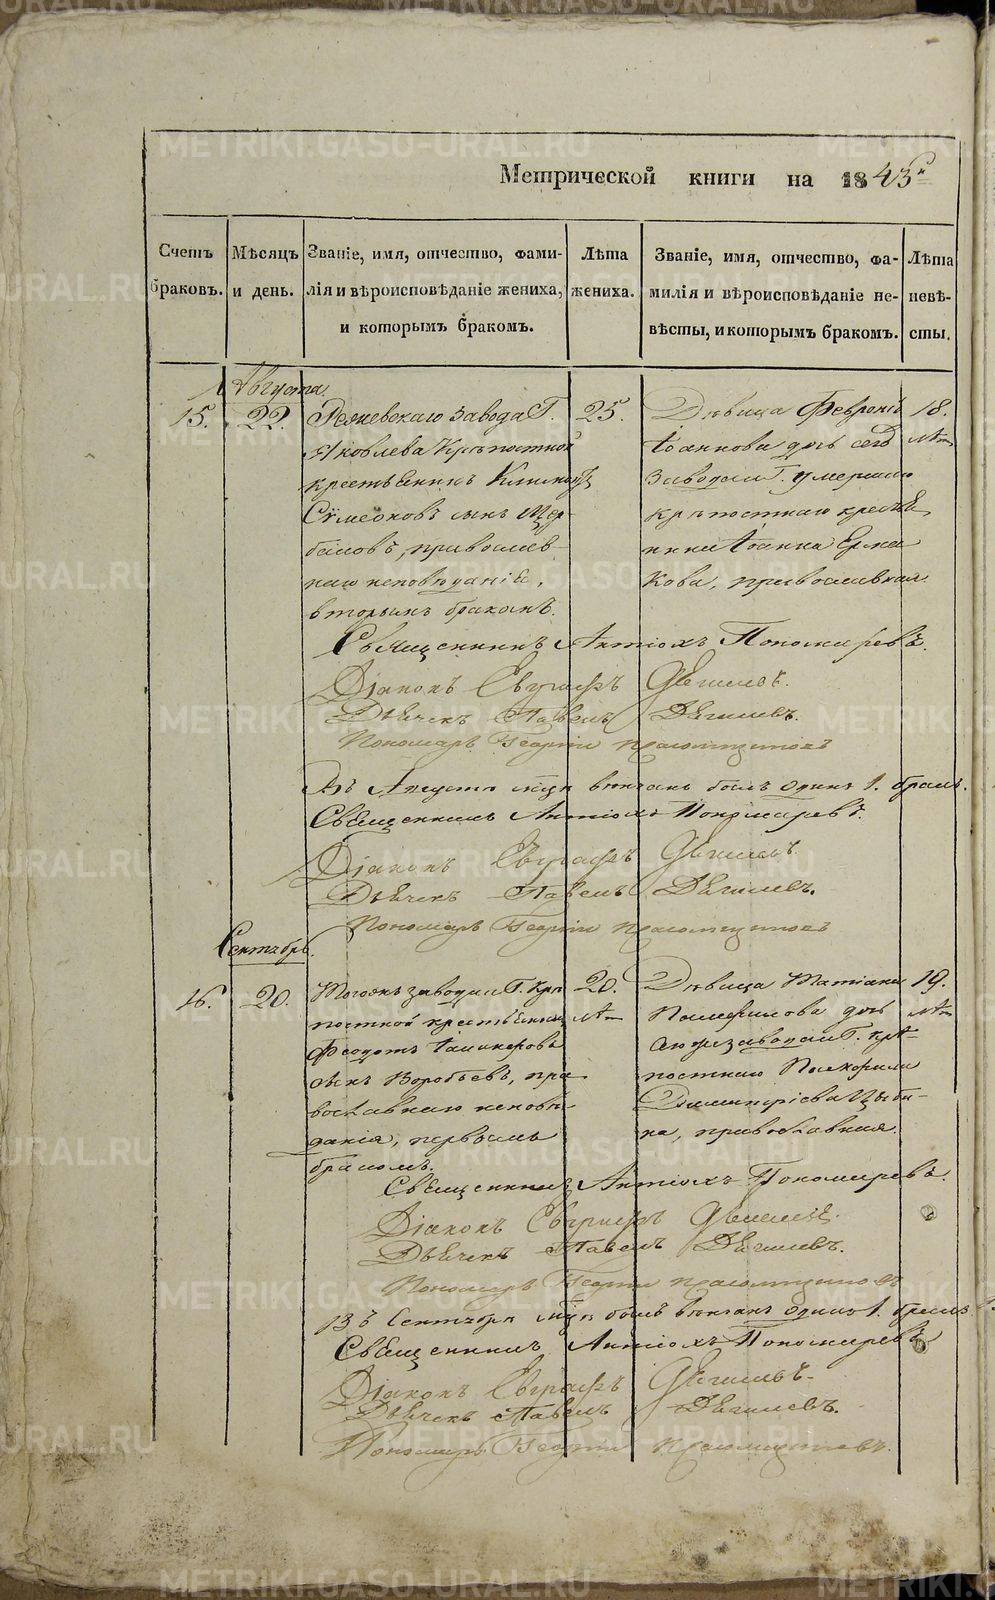 Метрической книги на 1843й
Счетъ браковъ.
Мѣсяцъ и день.
Званіе, имя, отчество, фами-
лія и вѣроисповѣданіе жениха,
и которымъ бракомъ.
Лѣта
жениха.
Званіе, имя, отчество, фа-
милія и вѣроисповѣданіе не-
вѣсты, и которымъ бракомъ.
Лѣта
невѣ-
сты.
Августа
15.
22.
Режевскаго завода Г.
Яковлева крѣпостной
крестьянинъ
Сѵмеоновъ сынъ Щер-
баковъ, православ-
наго исповѣданія,
вторымъ бракомъ.
25.
Дѣвица Февронія
Іоаннова дочь сего
завода Г. умершаго
крѣпостнаго крестья
нина Іоанна Ерма
кова, православная.
18.
лѣт
Священникъ Антіохъ Пономаревъ.
Діаконъ Евграфъ Дягилевъ.
Дьячекъ Павелъ Дягилевъ.
Пономарь Георгій
Въ Августѣ мцѣ вѣнчанъ былъ одинъ 1. бракъ.
Священникъ Антіохъ Пономаревъ.
Діаконъ Евграфъ Дягилевъ.
Дьячекъ Павелъ Дягилевъ.
Пономарь Георгій
Сентябрь.
16.
20.
Тогожъ завода Г. крѣ
постной крестьянинъ
Феодотъ
сынъ Воробьевъ, пра
вославнаго исповѣ
данія, первымъ
бракомъ.
20.
лѣт
Дѣвица Татіана
Памфилова дочь
завода Г. крѣ-
постнаго Памфила
Димитріева Цыби-
на, православная.
19.
лѣт
Священникъ Антіохъ Пономаревъ.
Діаконъ Евграфъ Дягилевъ.
Дьячекъ Павелъ Дягилевъ.
Пономарь Георгій
Въ Сентябрѣ мцѣ былъ вѣнчанъ одинъ 1. бракъ
Священникъ Антіохъ Пономаревъ
Діаконъ Евграфъ Дягилевъ.
Дьячекъ Павелъ Дягилевъ.
Пономарь Георгій
METRIKI.GASO-URAL.RU